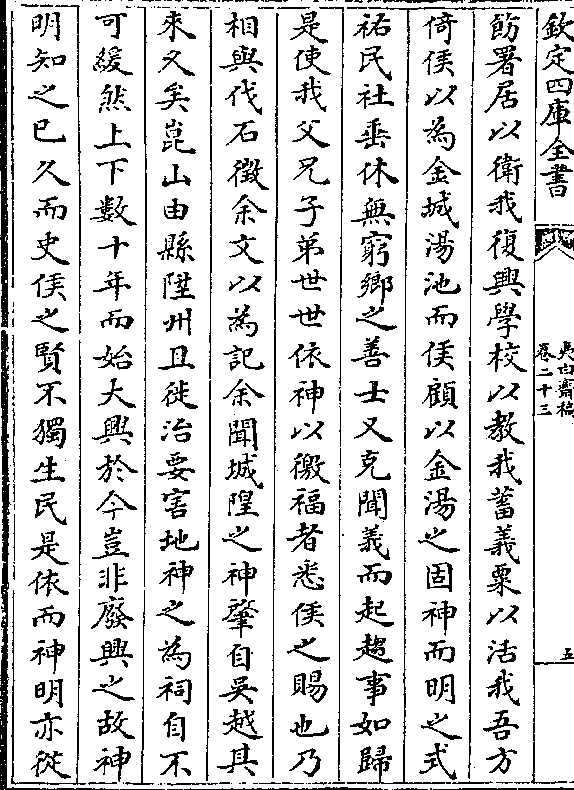 欽定四庫全書
夷白齋稿
卷二十三
五
飭署居以衛我復興學校以教我蓄義粟以活我吾方
倚侯以為金城湯池而侯顧以金湯之固神而明之式
祐民社垂休無窮鄉之善士又克聞義而起趨事如歸
是使我父兄子弟世世依神以徼福者悉侯之賜也乃
相與伐石徵余文以為記余聞城隍之神肇自吳越其
來久矣崑山由縣陞州且徙治要害地神之為祠自不
可緩然上下數十年而始大興於今豈非廢興之故神
明知之已久而史侯之賢不獨生民是依而神明亦從